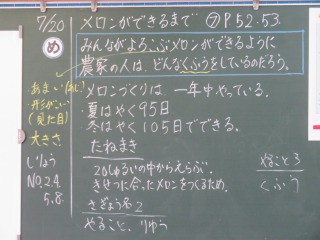 7/20 メロンができるまで ⑦P52.53.
め
みんながよろこぶメロンができるように
農家の人は、どんなくふうをしているのだろう。
あまい(あじ)
形がいい
(見た目)
大きさ
しりょう
NO.24
5.8.
メロンづくりは、一年中やっている。
・夏はやく95日
・冬はやく105日でできる。
たねまき
20しゅるいの中からえらぶ。
きせつに合ったメロンをつくるため。
さぎょう名2
やること、りゆう
やること3
くふう